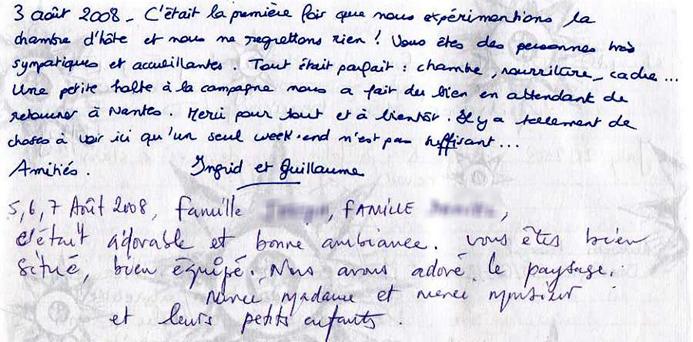 3 août 2008 - C'était la première fois que nous expérimentions la
chambre d'hôte et nous ne regrettons rien ! Vous êtes des personnes très
sympatiques et accueillantes. Tout était parfait : chambre, nourriture, cadre...
Une petite halte à la campagne nous a fait du bien en attendant de
retourner à Nantes. Merci pour tout et à bientôt. Il y a tellement de
choses à voir ici qu'un seul week-end n'est pas suffisant...
Amitiés. Ingrid et Guillaume
5,6,7 Août 2008, famille , FAMILLE ,
c'était adorable et bonne ambiance. vous êtes bien
situé, bien équipé. Nous avons adoré le paysage.
merci madame et merci monsieur
et leurs petits enfants.